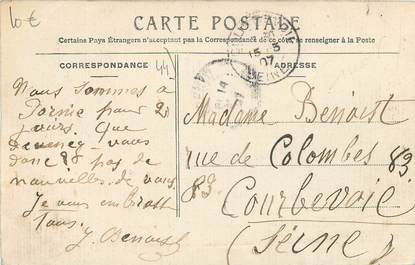 10€
CARTE POSTALE
Certains Pays Étrangers n'acceptant pas la Correspondance de ce côté se renseigner à la Poste
CORRESPONDANCE
ADRESSE
44
Nous sommes à
Pornic pour 2
jours. Que
devenez-vous
donc pas de
nouvelles de vous
Je vous embrasse
Tous.
J. Benoist
15 5
07
SEINE
Madame Benoist
rue de Colombes 83
83.
Courbevoie
(Seine)